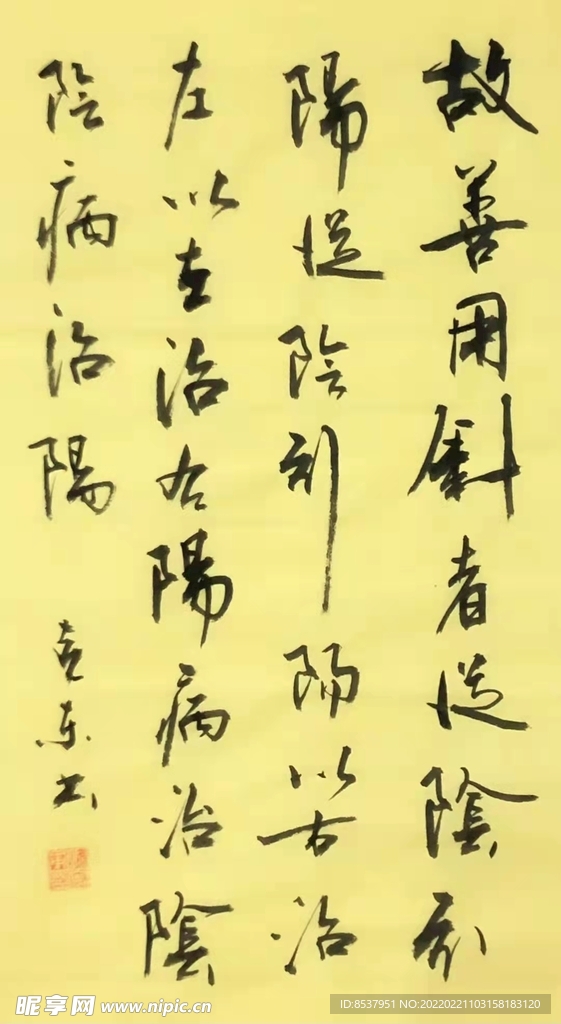 故善用針者從陰引
陽從陰引陽以右治
左以左治右陽病治陰
陰病治陽
东书
昵享网 www.nipic.cn
ID:8537951 NO:20220221103158183120